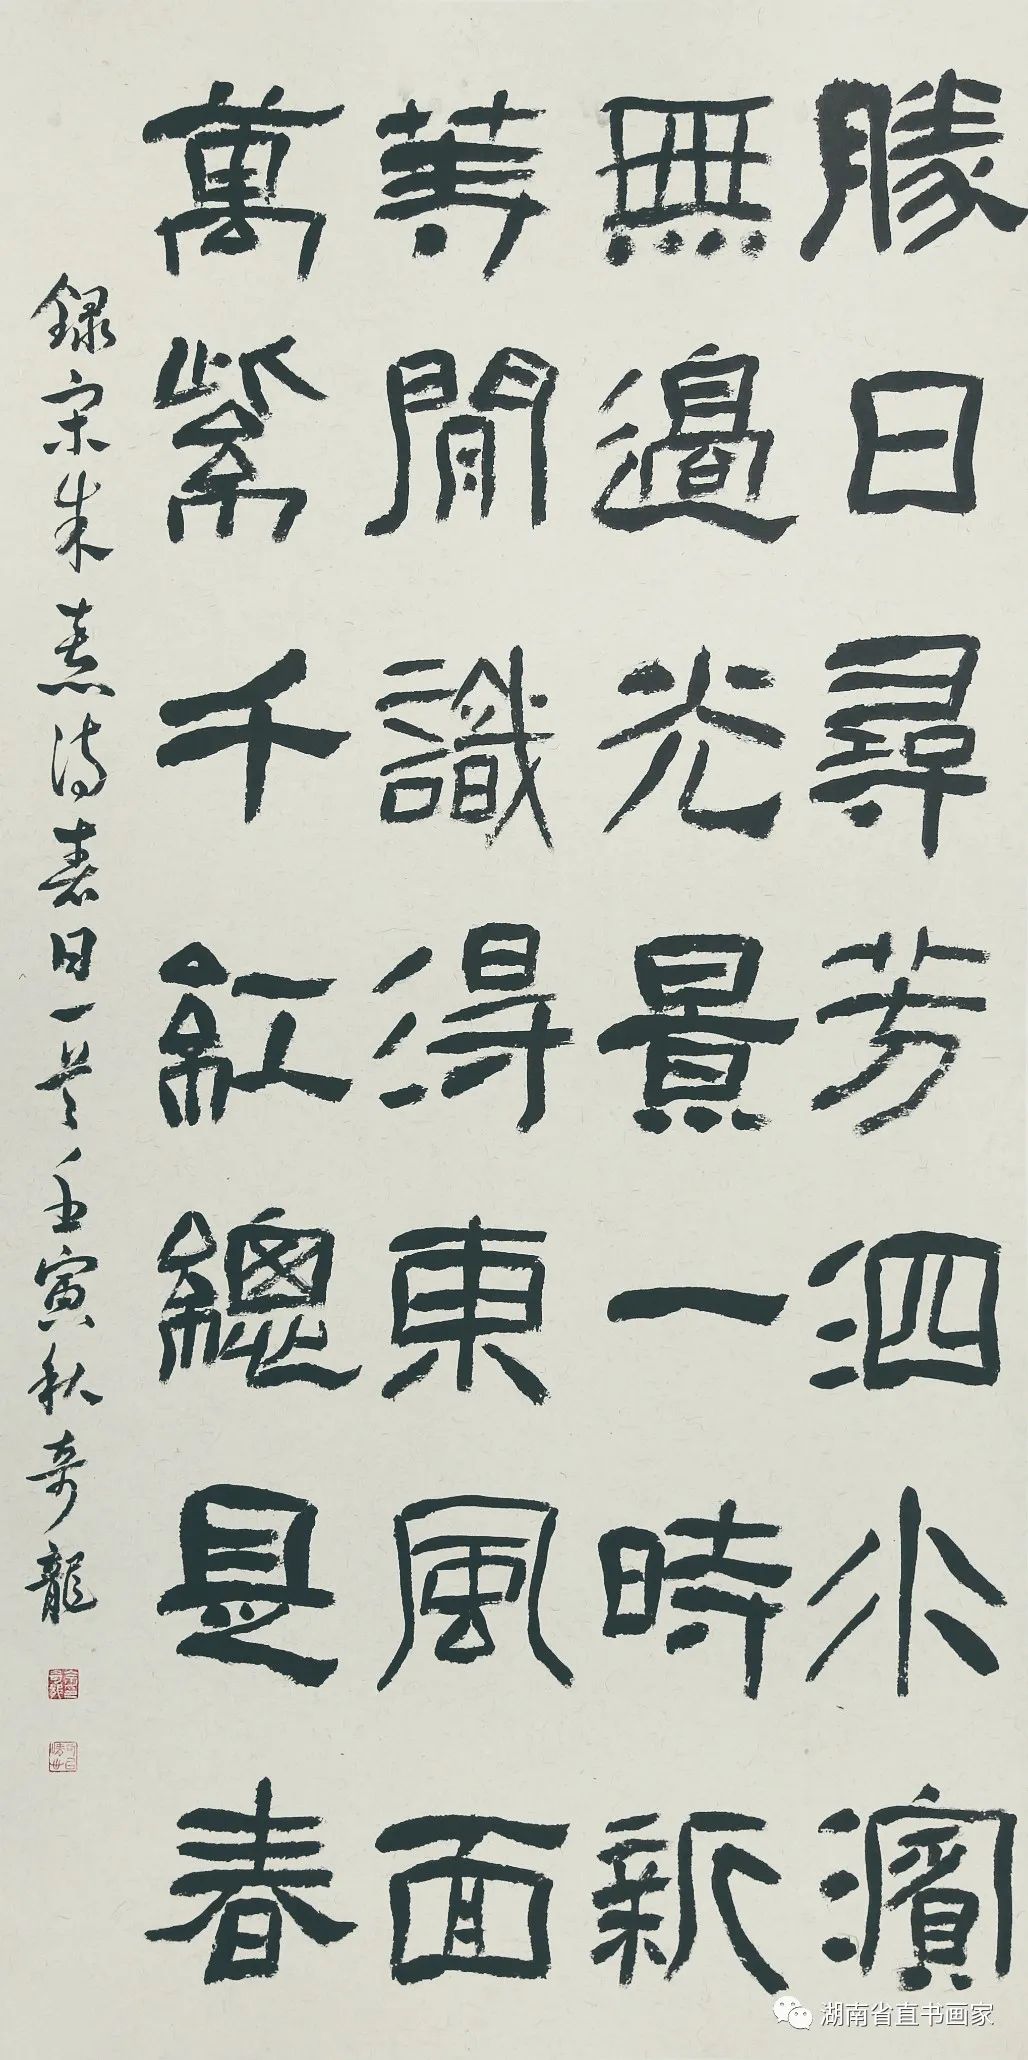 勝日尋芳泗水濱
無邊光景一時新
等閒識得東風面
萬紫千紅總是春
録宋朱熹詩春日一首壬寅秋奇龍
湖南省直书画家